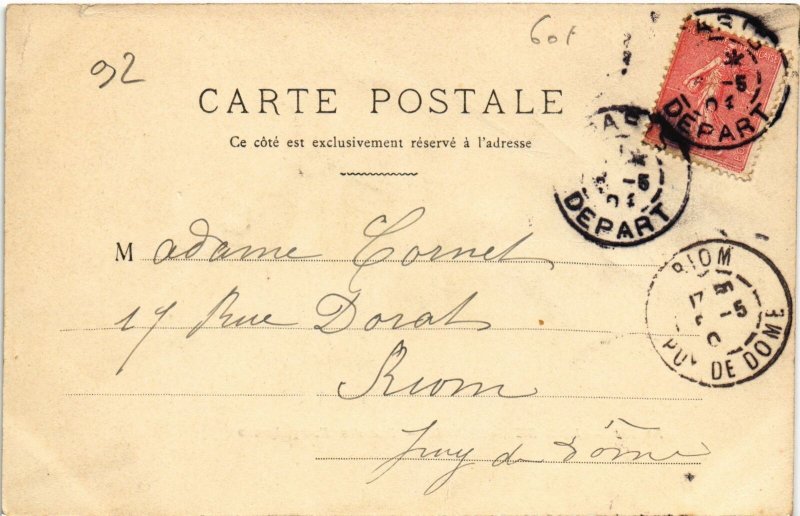 92
60F
CARTE POSTALE
Ce côté est exclusivement réservé à l'adresse
PARIS
-5
04
DEPART
PARIS
-5
04
DEPART
Madame Cornet
17 Rue Dorat
Riom
Puy de Dôme
RIOM
17
-5
PUY DE DOME